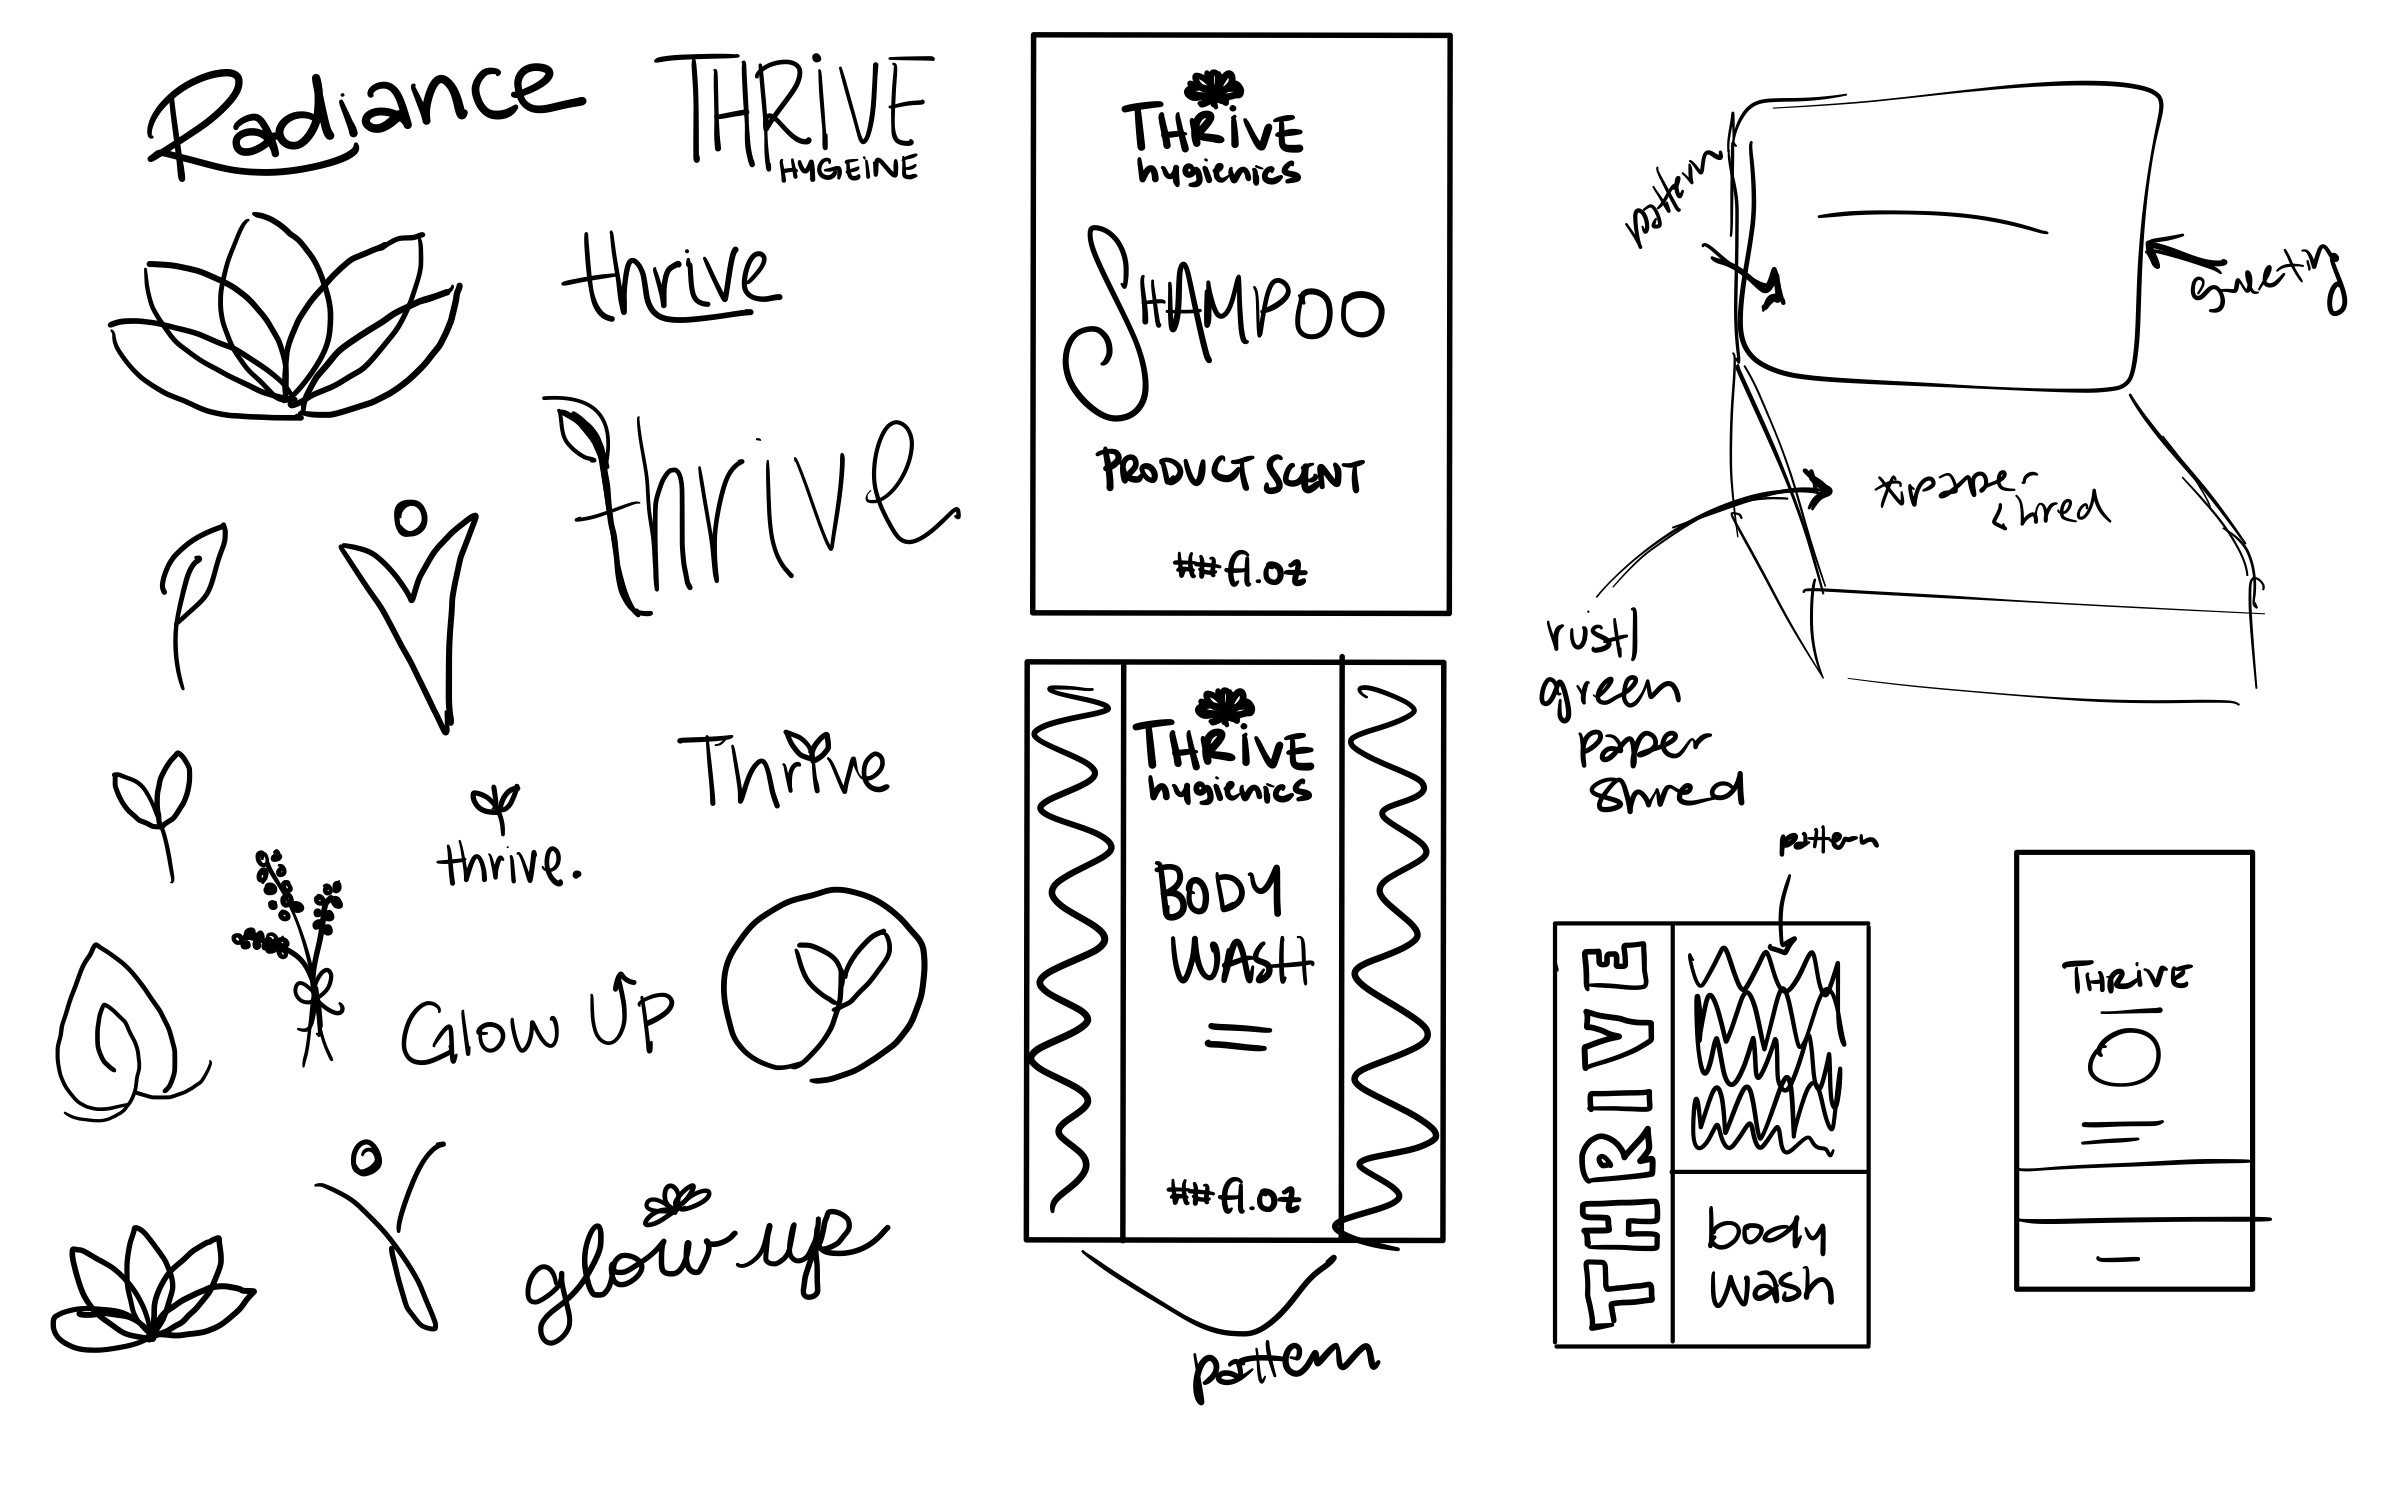 Radiance
THRiVE
HYGEiNE
thrive
thrive
Thrive
thrive.
Glow UP
glow-up
THRiVE
hygienics
SHAMPOO
PRODUCT SCENT
##fl.oz
THRiVE
hygienics
BODY
WASH
##fl.oz
pattern
pattern
rustl
green
paper
shred
pattern
THRIVE
body
wash
THRive